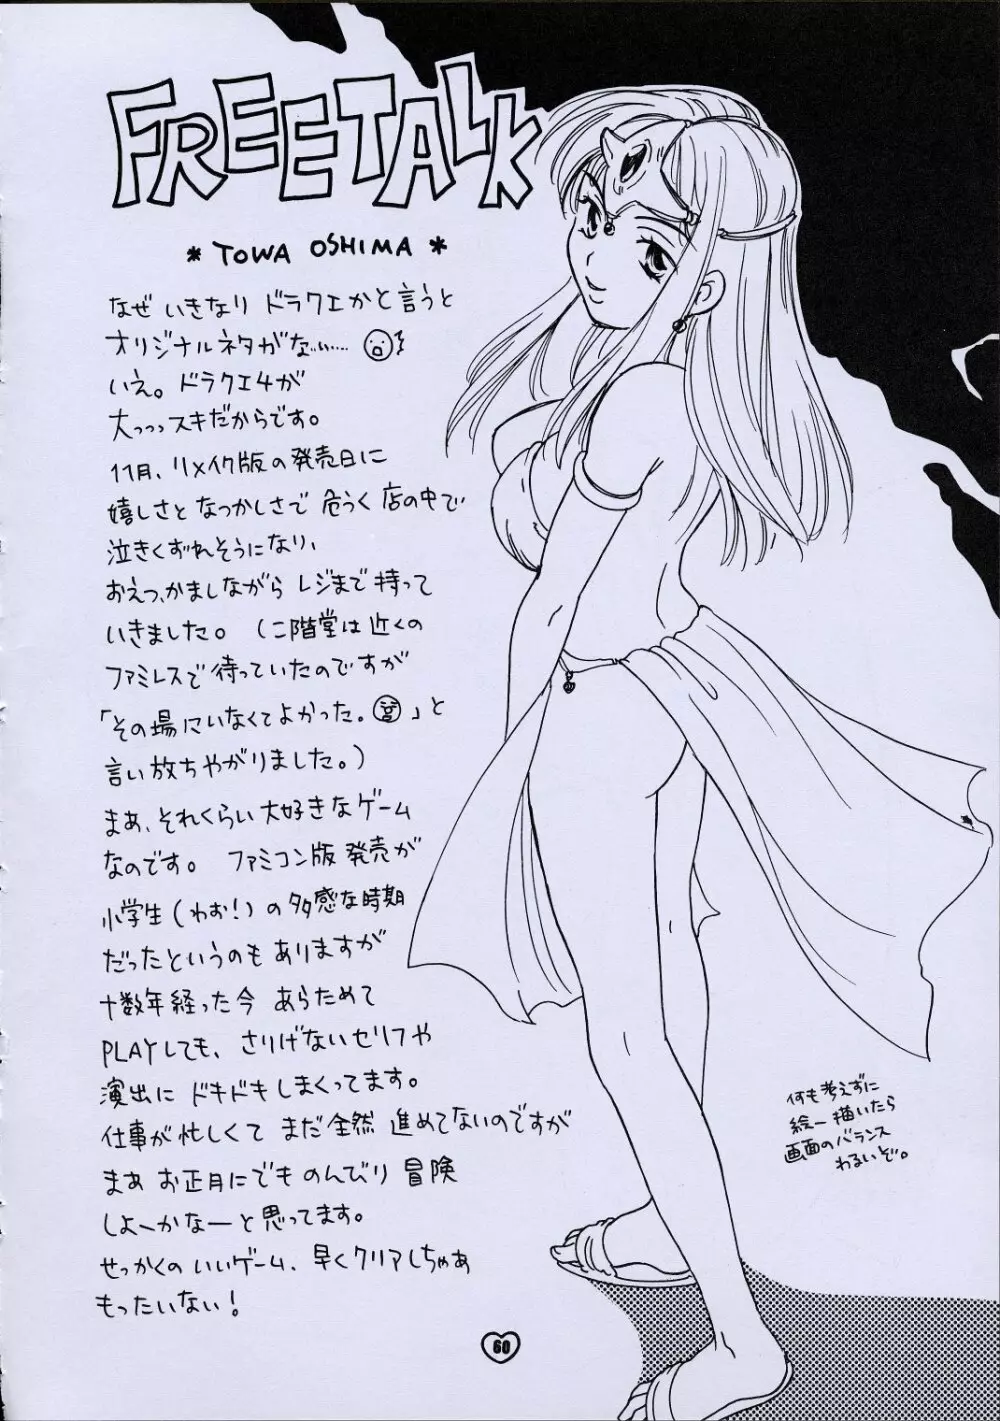 FREETALK
* TOWA OSHIMA *
なぜ いきなり ドラクエかと言うと
オリジナルネタがな……
いえ。ドラクエ4が
大っっっスキだからです。
11月、リメイク版の発売日に
嬉しさと なつかしさで 危うく 店の中で
泣きくずれそうになり、
おえつ、かましながら レジまで 持って
いきました。 (二階堂は近くの
ファミレスで 待っていたのですが
「その場にいなくてよかった。」と
言い放ちやがりました。)
まあ、それくらい大好きなゲーム
なのです。 ファミコン版 発売が
小学生(わお!)の多感な時期
だったというのも ありますが
十数年経った今 あらためて
PLAYしても、さりげないセリフや
演出に ドキドキしまくってます。
仕事が忙しくて まだ全然 進めてないのですが
まあ お正月にでも のんびり 冒険
しよーかなーと思ってます。
せっかくの いいゲーム、早くクリアしちゃあ
もったいない!
何も考えずに
絵ー描いたら
画面のバランス
わるいぞ。
60